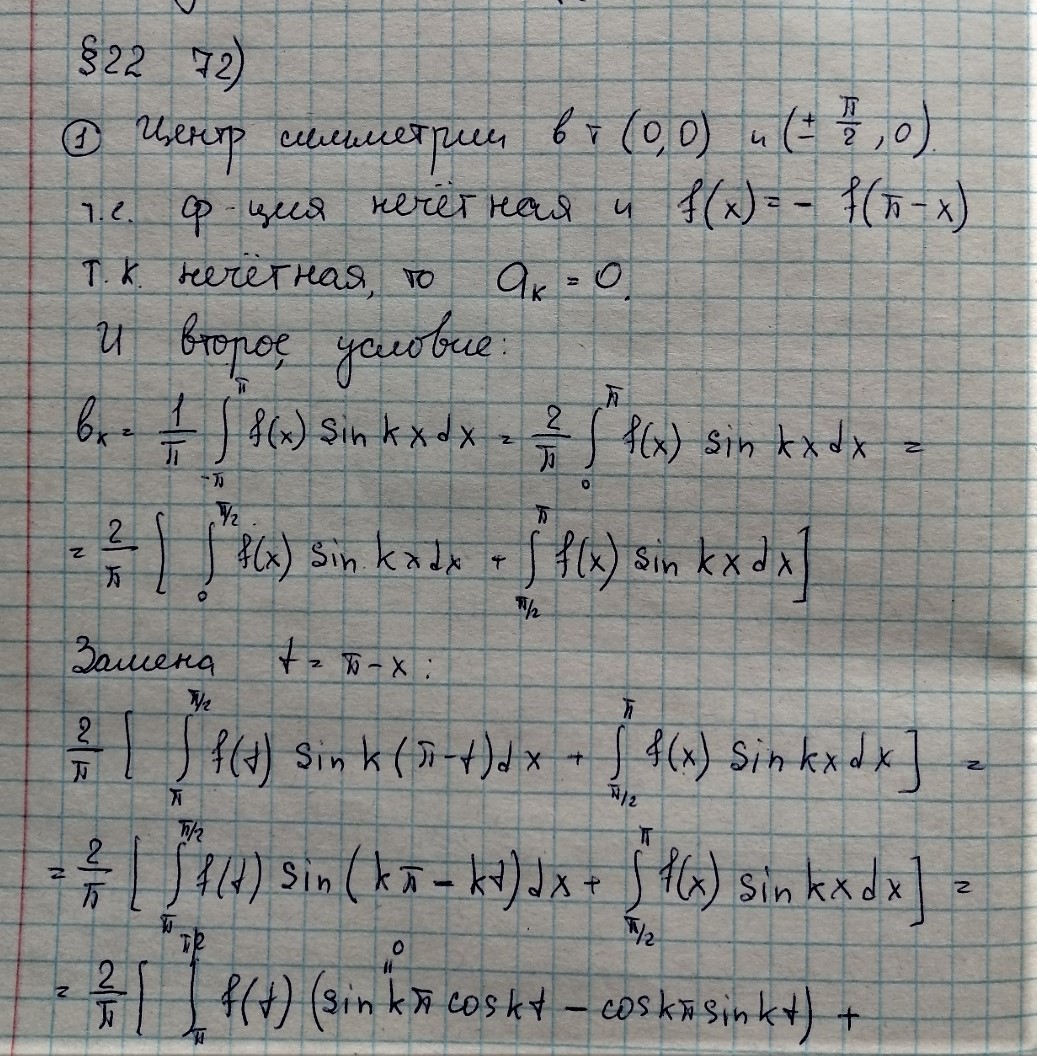 §22 72)
① Центр симметрии в т (0,0) и (± π/2, 0).
т.е. ф-ция нечётная и f(x) = - f(π-x)
т.к. нечётная, то aₖ = 0.
И второе условие:
bₖ = 1/π ∫_{-π}^{π} f(x) sin kx dx = 2/π ∫_0^π f(x) sin kx dx =
= 2/π [ ∫_0^{π/2} f(x) sin kx dx + ∫_{π/2}^π f(x) sin kx dx ]
Замена t = π-x:
2/π [ ∫_π^{π/2} f(t) sin k(π-t) dx + ∫_{π/2}^π f(x) sin kx dx ] =
= 2/π [ ∫_π^{π/2} f(t) sin (kπ - kt) dx + ∫_{π/2}^π f(x) sin kx dx ] =
0
= 2/π [ ∫_π^{π/2} f(t) (sin kπ cos kt - cos kπ sin kt) +